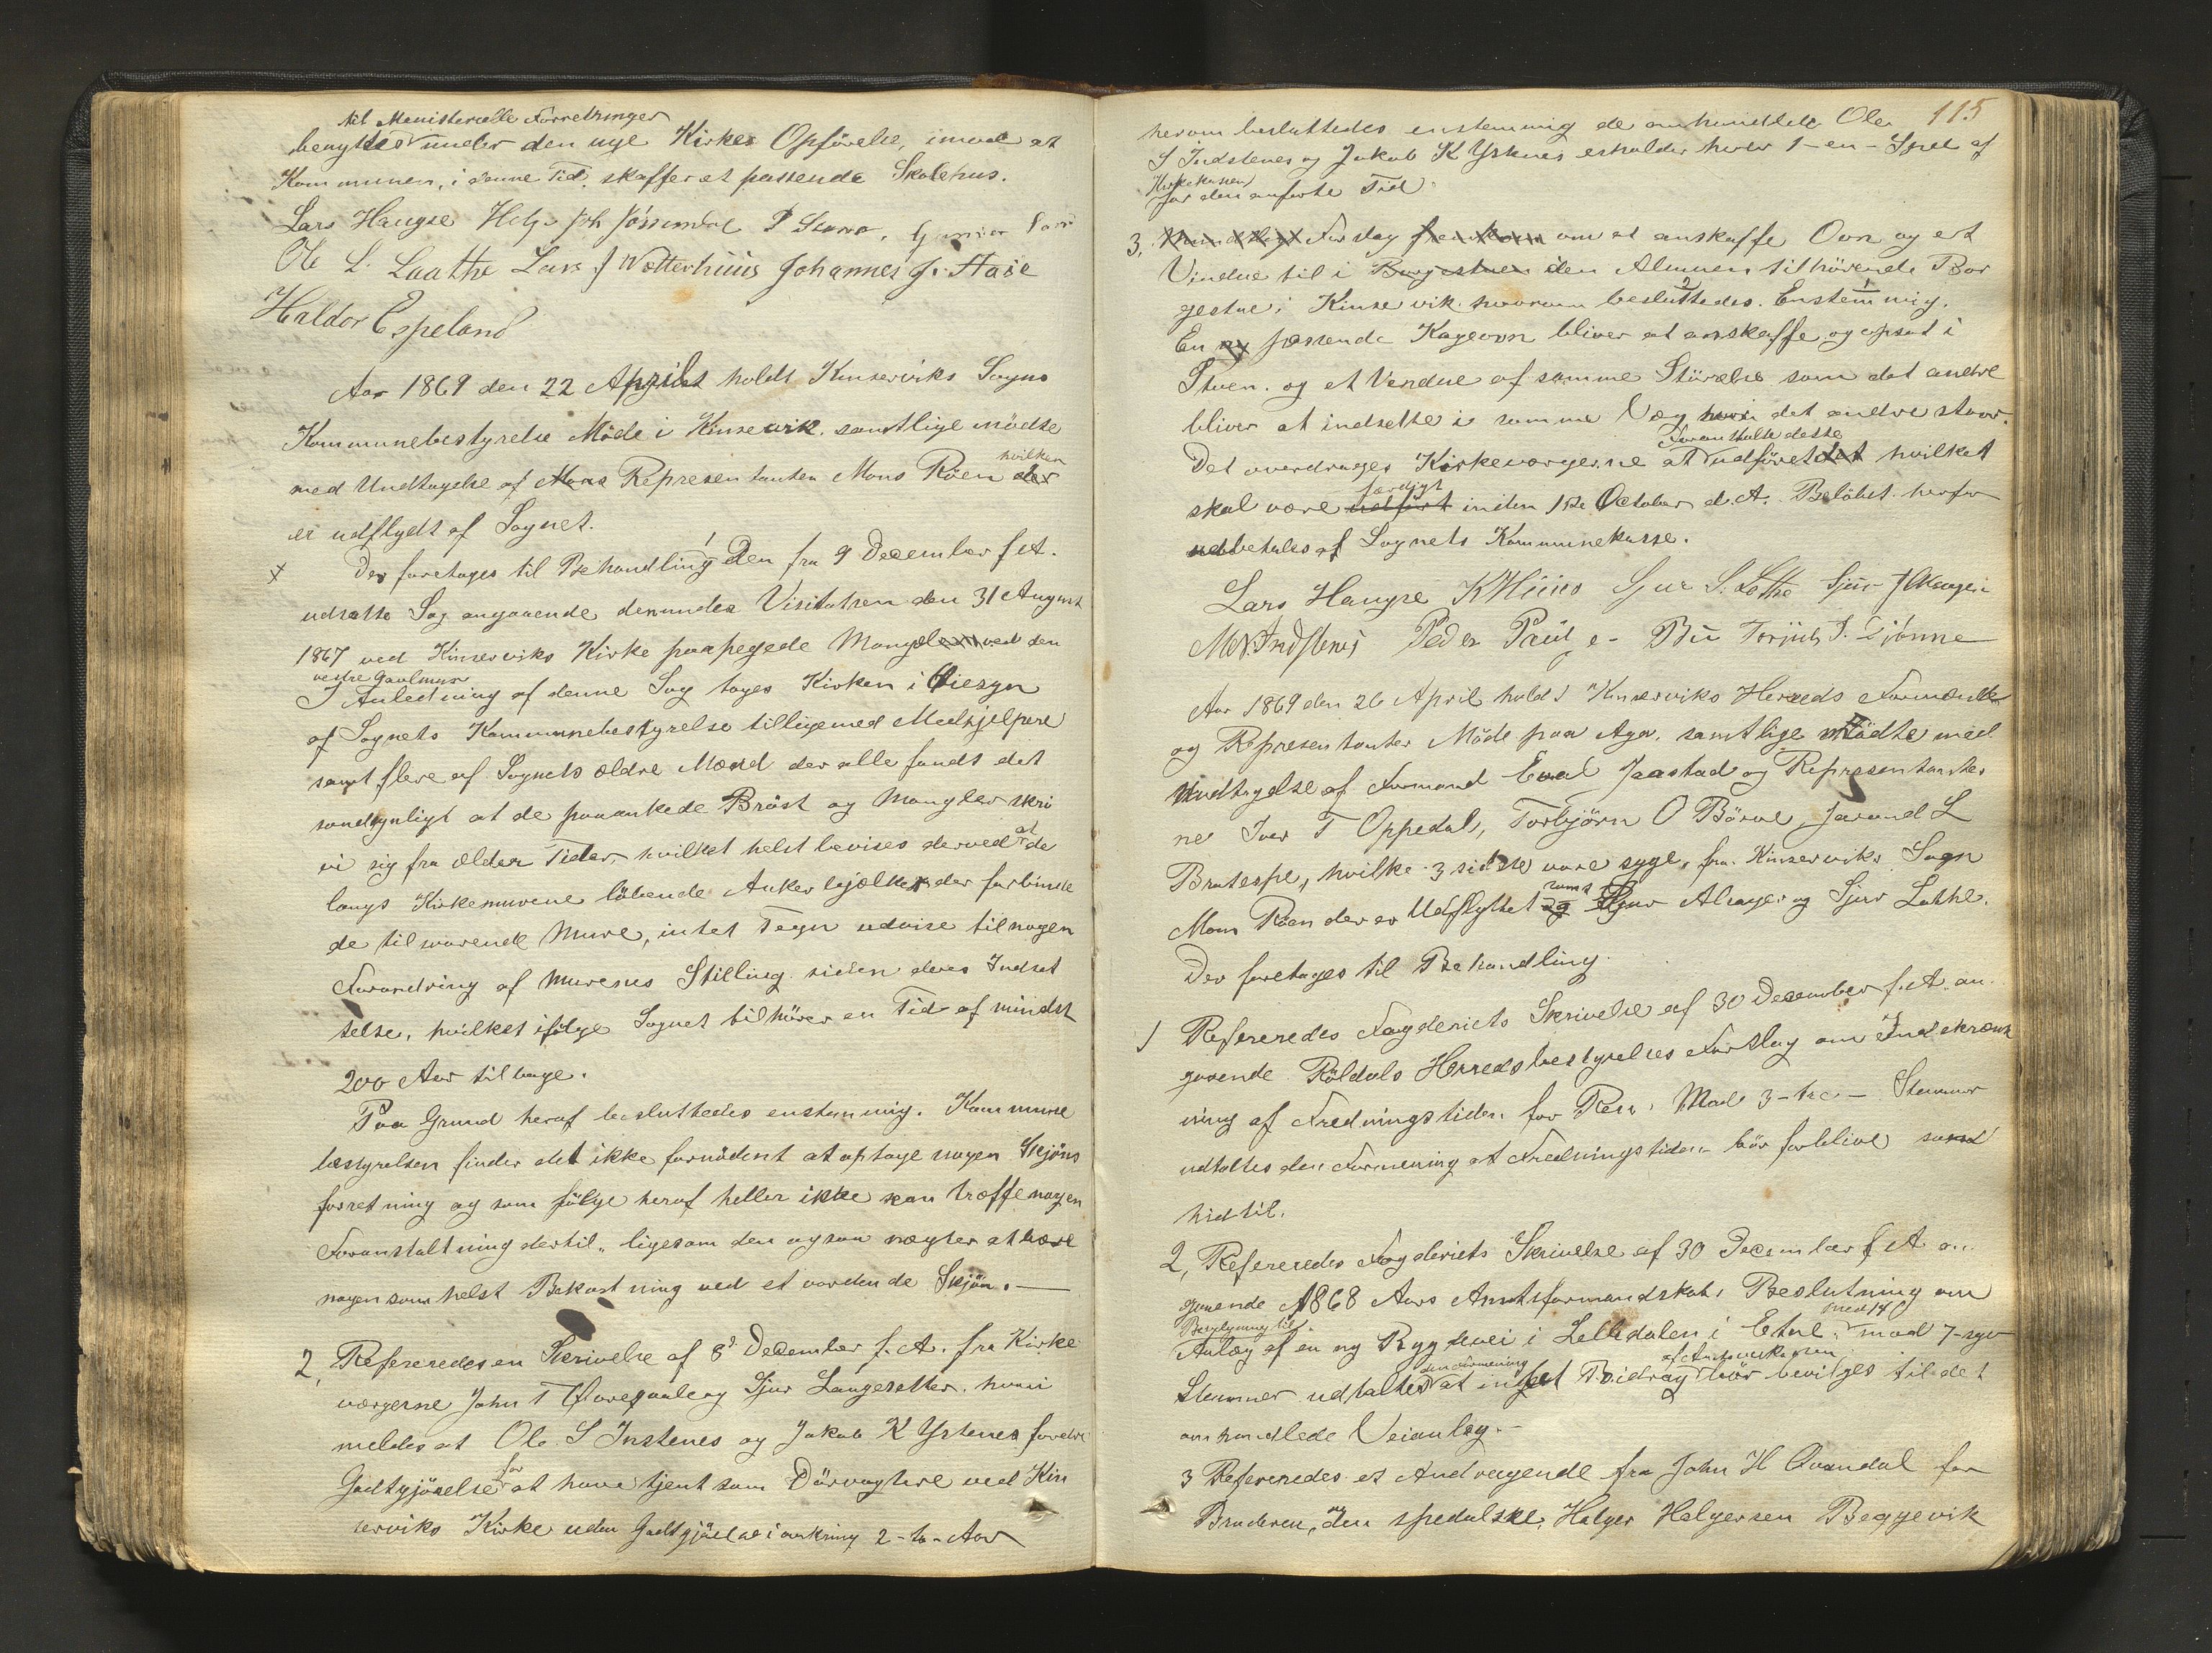 til Ministerielle Forretninger
benyttes under den nye Kirkes Opförelse, imod at
Kommunen, i denne Tid, skaffer et passende Skolehus.
Lars Haugse Helje Joh Jössendal P
Ole L. Laathe Lars J Wetterhuus Johannes J. Haie
Haldor Espeland
Aar 1869 den 22 April holdt Kinserviks Sogns
Kommunebestyrelse Möde i Kinservik. samtlige mödte
hvilken
med Undtagelse af Mons Representanten Mons Röen der
er udflydt af Sognet.
Der foretoges til Behandling 1 Den fra 9 December f. A.
udsatte Sag angaaende den under Visitatsen den 31 August
1867 ved Kinserviks Kirke paapegede Mangel ved den
vestre Gavlmur
I Anledning af denne Sag toges Kirken i Øiesyn
af Sognets Kommunebestyrelse tilligemed Medhjelpere
samt flere af Sognets ældre Mænd der alle fandt det
sandsynligt at de paaankede Bröst og Mangler skri
ver sig fra ældre Tider, hvilket helst bevises derved at de
langs Kirkemurene löbende Ankerbjælker der forbinde
de tilsvarende Mure, intet Tegn udvise til nogen
Forandring af Murenes Stilling siden deres Indset
telse, hvilket ifölge Sognet tilhörer en Tid af mindst
200 Aar tilbage.
Paa Grund heraf besluttedes enstemmig. Kommune
bestyrelsen finder det ikke fornödent at optage nogen Skjöns
forretning og som fölge heraf heller ikke kan træffe nogen
Foranstaltning dertil, ligesom den ogsaa negter at bære
nogensomhelst Bekostning ved et vordende Skjön.
2, Refereredes en Skrivelse af 8de December f. A. fra Kirke
værgerne John T og Sjur Langesetter. hvori
meldes at Ole S Instenes og Jakob K Ystenes fordre
Godtgjörelse for at have tjent som Dörvogtere ved Kin
serviks Kirke uden Godtgjörelse i omkring 2 - to - Aar
115
herom besluttedes enstemmig de omhandlede Ole
S Indstenes og Jakob K Ystenes erholder hver 1 - en - Spd af
Kirkekassen
for den anförte Tid.
3, Forslag om at anskaffe Ovn og et
Vindue til i Borgestuen den Almuen tilhörende Bor
gestue i Kinservik hvorom besluttedes 2 Enstemmig. 1
En ny passende Kageovn bliver at anskaffe og opsat i
Stuen. og et Vindue af samme Störelse som det andre
bliver at indsette i samme Væg hvori det andre staar.
Foranstalte dette
Det overdrages Kirkevergerne at udföret det hvilket
færdigt
skal være udfört inden 1ste October d. A. Belöbet herfor
udbetales af Sognets Kommunekasse.
Lars Haugse K Huus Sjur S. Lothe Sjur J Alsager
M N. Indstenes Peder Paul e - Bu Torjuls J. Djönne
Aar 1869 den 26 April holdt Kinserviks Herreds Formænd
og Representanter Möde paa Aga. samtlige mödte med
Undtagelse af Formand Eval Jaastad og Representanter
ne Iver T Oppedal, Torbjörn O Börve, Jarand L
Bratespe, hvilke 3 sidste vare syge, fra Kinserviks Sogn
Mons Röen der er Udflyttet og samt Sjur Alsager og Sjur Lothe.
Der foretages til Behandling.
1 Refereredes Fogderiets Skrivelse af 30 December f. A. an
gaaende Röldals Herredsbestyrelses Forslag om Indskrænk
ning af Fredningstiden for Ren. Mod 3 - tre - Stemmer
udtaltes den Formening at Fredningstiden bör forblive som
hidtil.
2, Refereredes Fogderiets Skrivelse af 30 December f. A an
gaaende 1868 Aars Amtsformandskabs Beslutning om
Bevilgning til med 14
Anlæg af en ny Bygdevei i i Etne, mod 7 - syv
den Formening af Amtsveikassen
Stemmer udtaltes at intet Bidrag bör bevilges til det
omhandlede Veianlæg. -
3 Refereredes et Andragende fra John H Qvandal for
Broderen, den spedalske, Helger Helgersen Beggevik